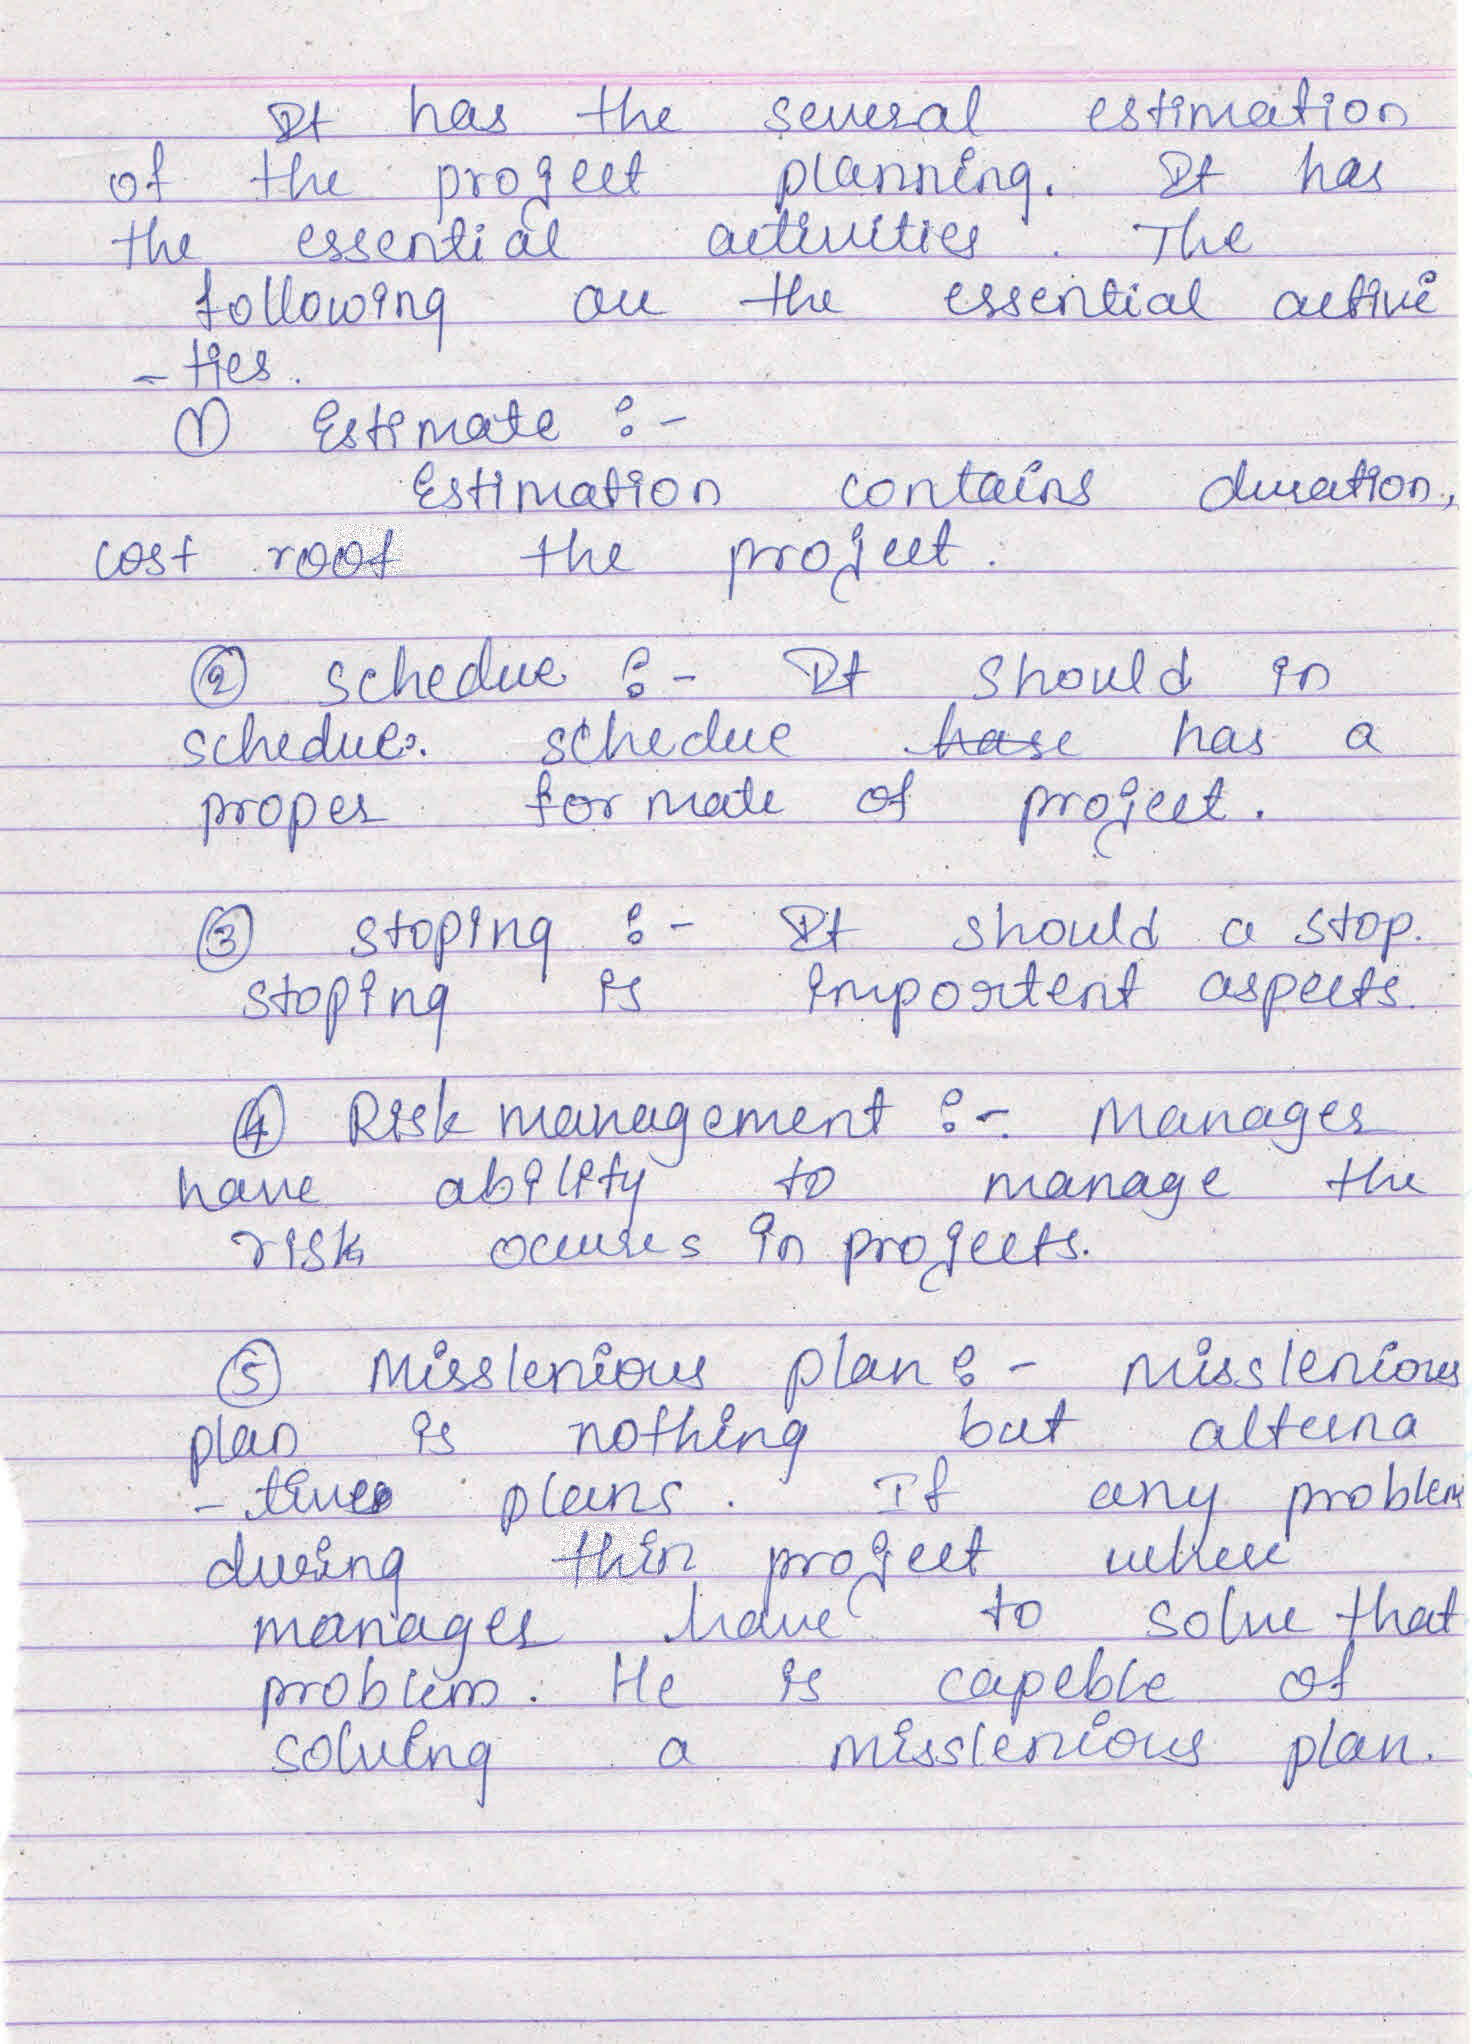 It has the several estimation
of the project planning. It has
the essential activities. The
following are the essential activi
- ties.
① Estimate :-
Estimation contains duration,
cost roof the project.
② schedue :- It should in
schedue. schedue hase has a
proper formate of project.
③ stoping :- It should a stop.
stoping is importent aspects.
④ Risk management :- Manager
have ability to manage the
risk occures in projects.
⑤ Misslenious plan :- misslenious
plan is nothing but alterna
- tive plans. If any problem
during thin project where
manager have to solve that
problem. He is capeble of
solving a misslenious plan.